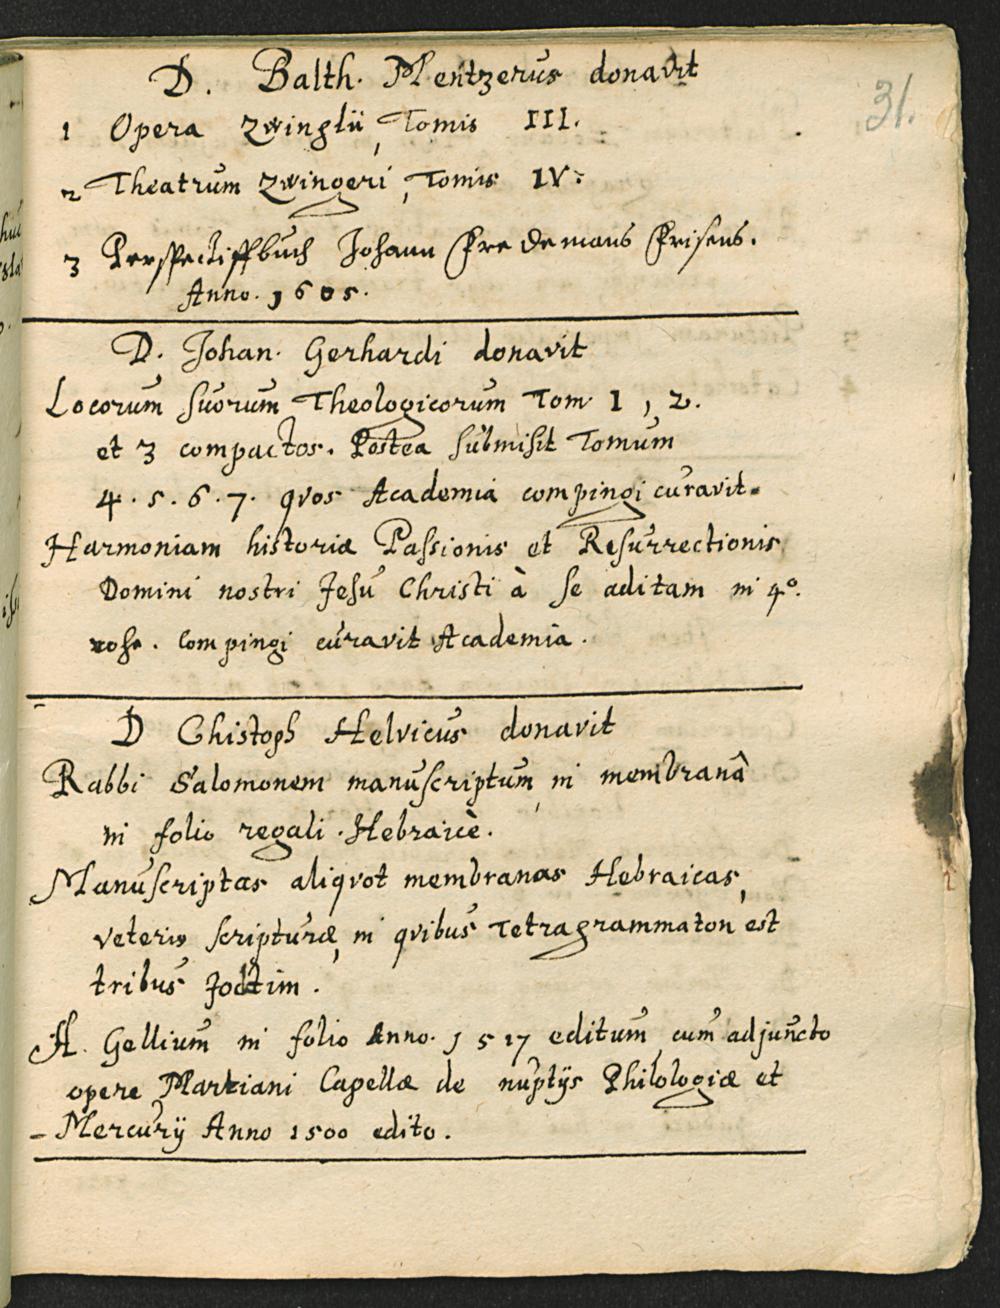 31.
D. Balth. Mentzerus donavit
1 Opera Zwinglii, Tomis III.
2 Theatrum Zwingeri, Tomis IV.
3 Perspectiffbuch Johann Fredemans Frisens.
Anno. 1605.
D. Johan. Gerhardi donavit
Locorum suorum Theologicorum Tom. 1, 2.
et 3 compactos. Postea submisit Tomum
4. 5. 6. 7. qvos Academia compingi curavit.
Harmoniam historiæ Passionis et Resurrectionis
Domini nostri Jesu Christi à se aditam in 4º.
rohe. Compingi curavit Academia.
D Chistoph Helvicus donavit
Rabbi Salomonem manuscriptum, in membranâ
in folio regali. Hebraicè.
Manuscriptas aliqvot membranas Hebraicas,
veteris scripturæ, in qvibus Tetragrammaton est
tribus Jodtim.
A. Gellium in folio Anno. 1517 editum, cum adjuncto
opere Martiani Capellæ de nuptijs Philologiæ et
Mercurij Anno 1500 edito.